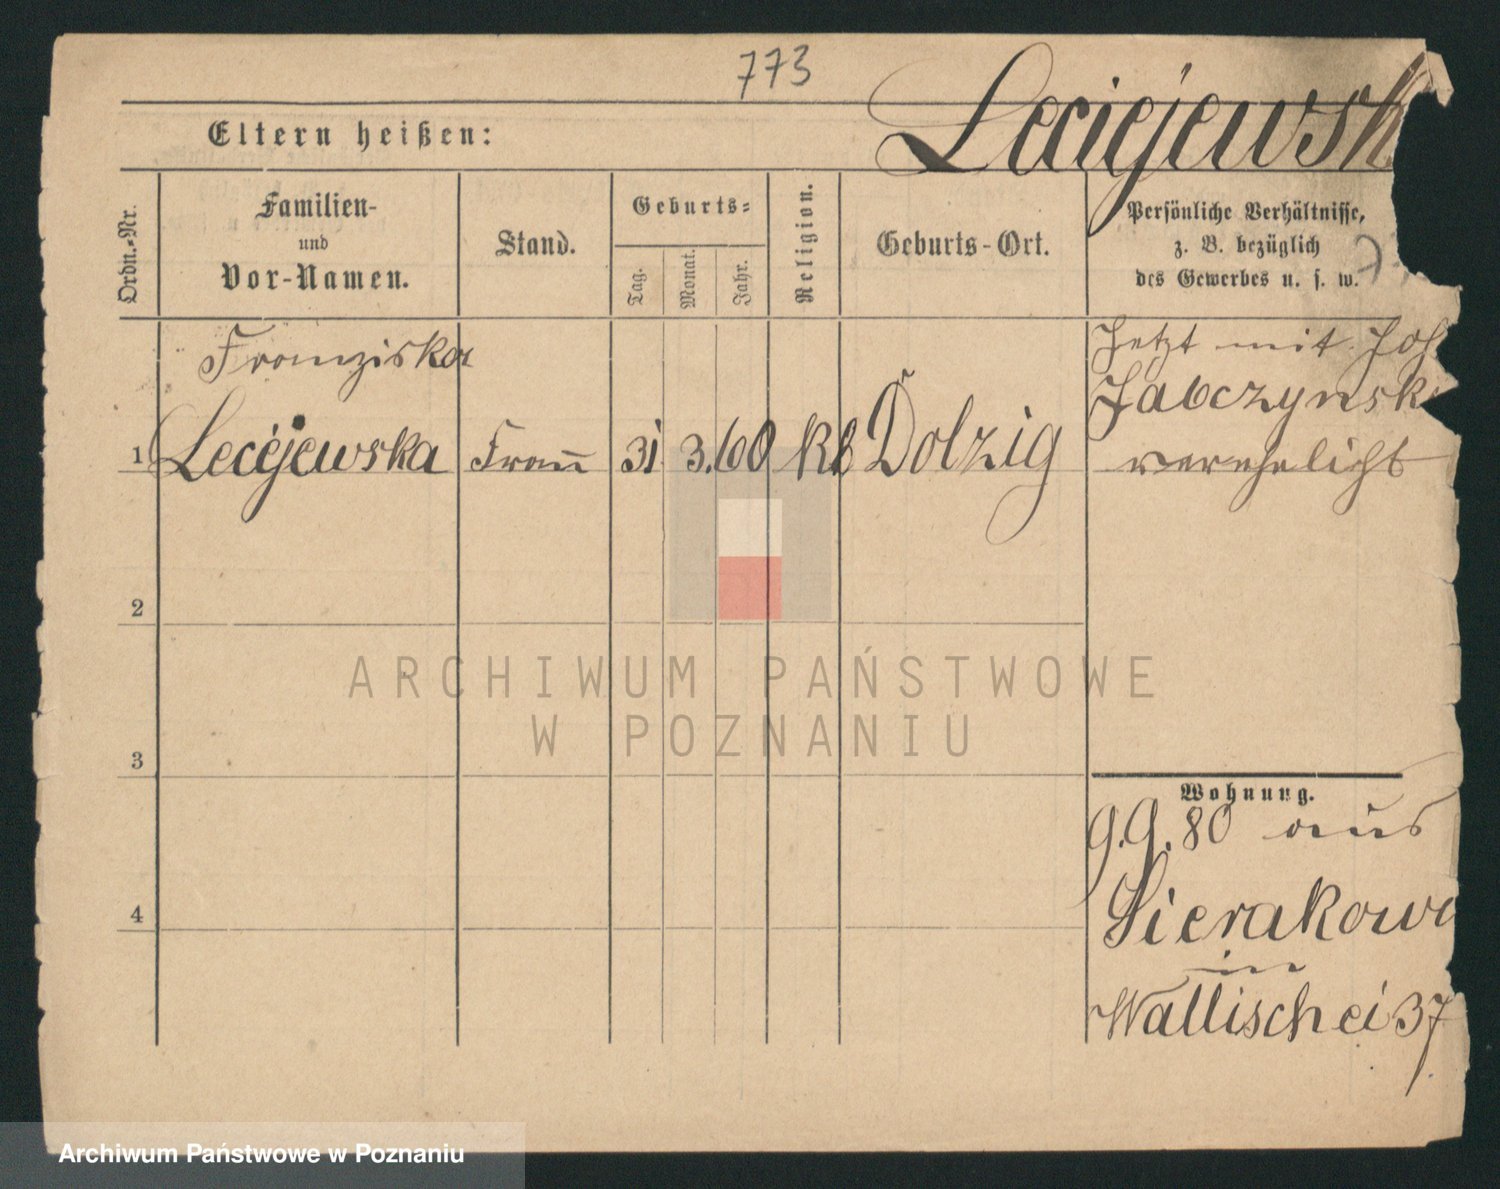 773
Eltern heißen:
Leciejewsk
Ordn.-Nr.
Familien-
und
Vor-Namen.
Stand.
Geburts-
Tag.
Monat.
Jahr.
Religion.
Geburts-Ort.
Persönliche Verhältnisse,
z. B. bezüglich
des Gewerbes u. s. w.
Franziska
1 Leciejewska Frau 31 3. 60 kk Dolzig
Jetzt mit Joh
Jabczynsk
verehelicht
2
3
4
Wohnung.
9.9.80 aus
Sierakowo
in
Wallischei 37
ARCHIWUM PAŃSTWOWE
W POZNANIU
Archiwum Państwowe w Poznaniu